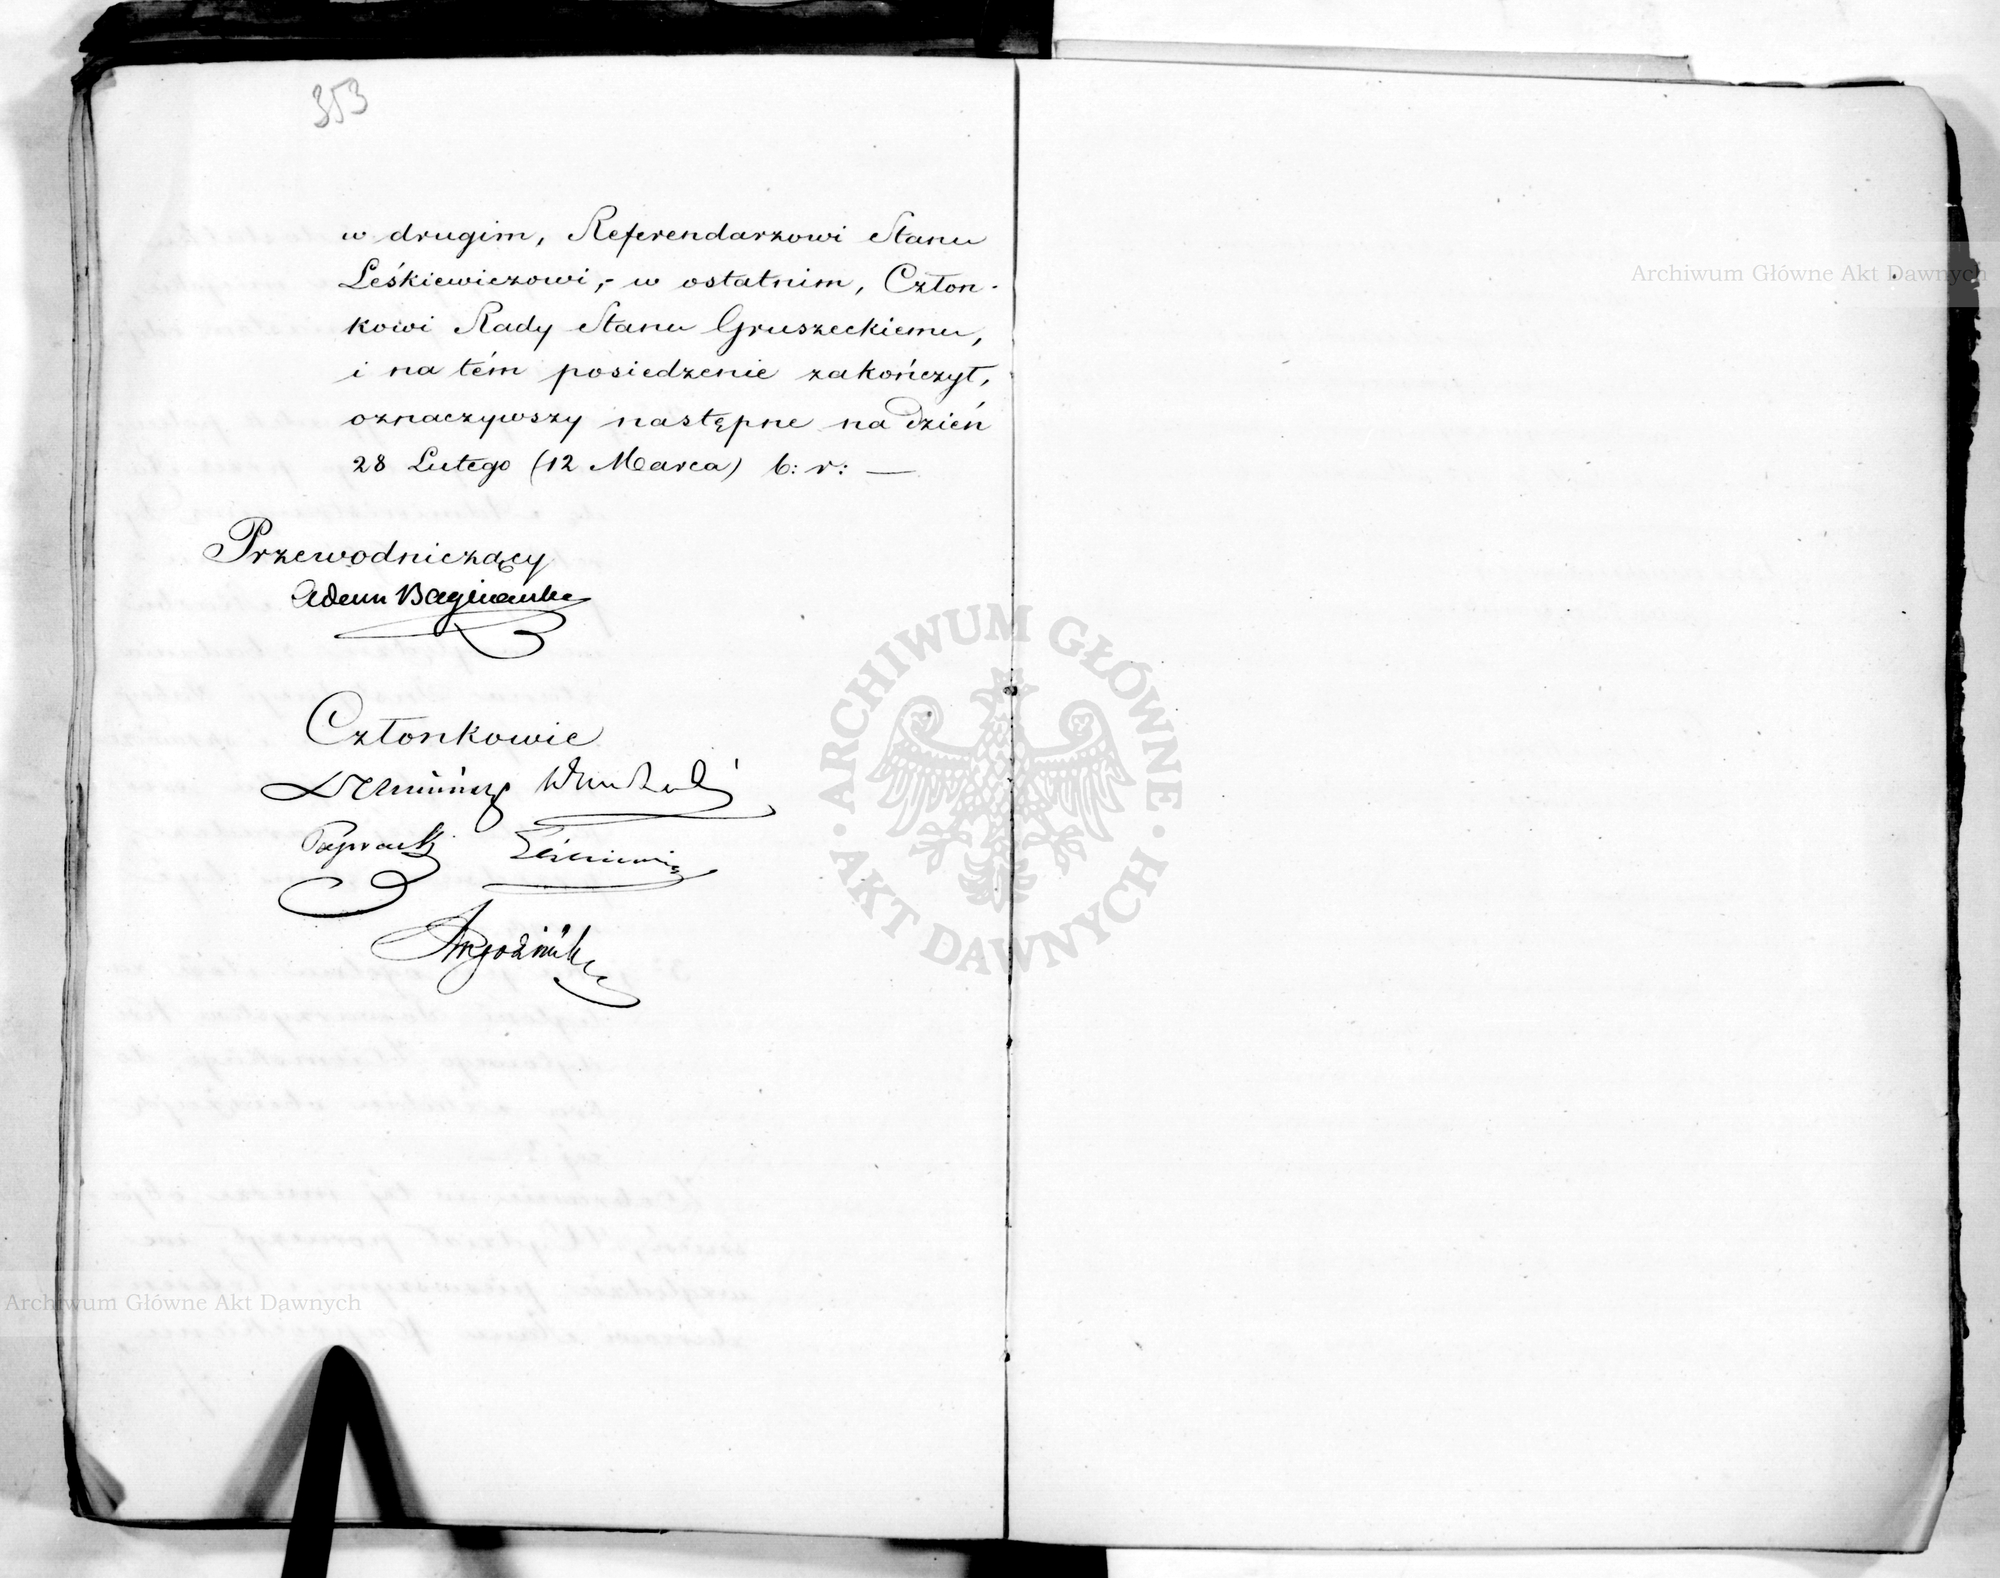 353
w drugim, Referendarzowi Stanu
Leśkiewiczowi,- w ostatnim, Człon-
kowi Rady Stanu Gruszeckiemu,
i na tém posiedzenie zakończył,
oznaczywszy następne na dzień
28 Lutego (12 Marca) b: r: —
Przewodniczący
Adam
Członkowie
Paprocki
Archiwum Główne Akt Dawnych
ARCHIWUM GŁÓWNE
AKT DAWNYCH
Archiwum Główne Akt Dawnych